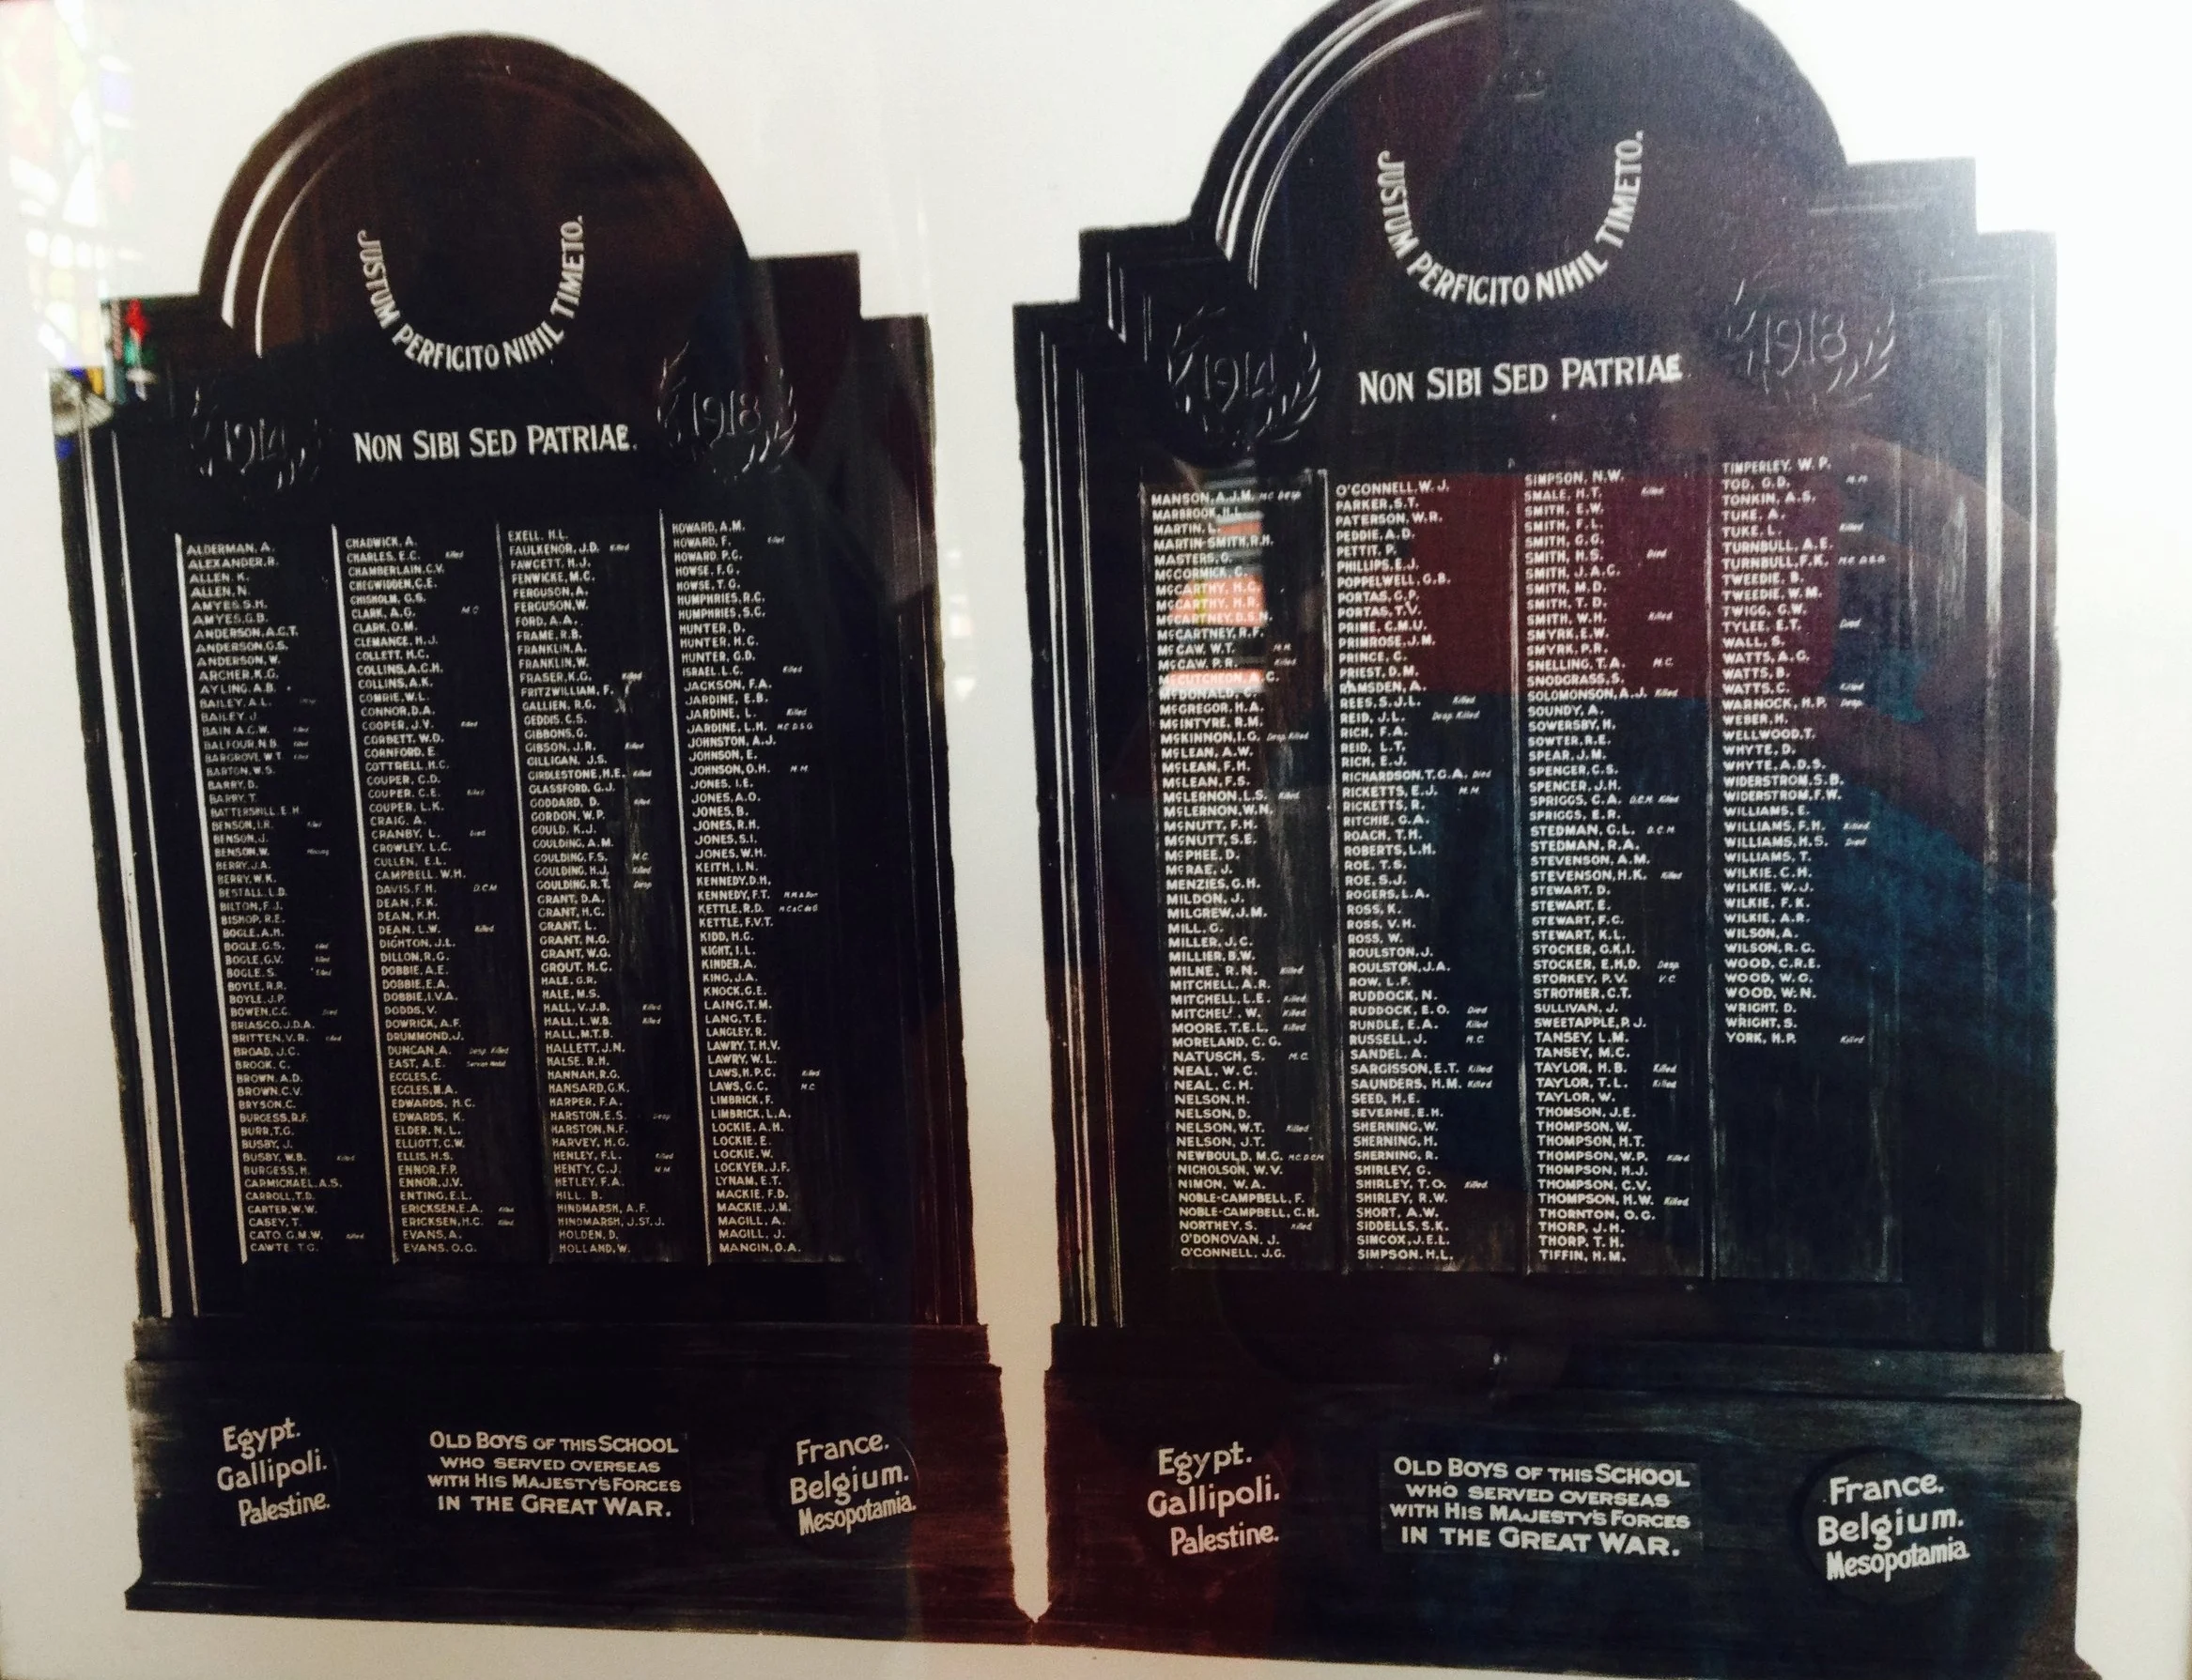 JUSTUM PERFICITO NIHIL TIMETO.
1914
1918
NON SIBI SED PATRIAE.
ALDERMAN, A.
ALEXANDER, R.
ALLEN, K.
ALLEN, N.
AMYES, S.H.
AMYES, G.B.
ANDERSON, A.C.T.
ANDERSON, G.S.
ANDERSON, W.
ARCHER, K.G.
AYLING, A.B.
BAILEY, A.L.
BAILEY, J.
BAIN A.C.W. Killed
BALFOUR, N.B. Killed
BARGROVE, W.T. Killed
BARTON, W.S.
BARRY, D.
BARRY, T.
BATTERSHILL, E.H.
BENSON, I.R. Killed
BENSON, J.
BENSON, W. Missing
BERRY, J.A.
BERRY, W.K.
BESTALL, L.D.
BILTON, F.J.
BISHOP, R.E.
BOGLE, A.H.
BOGLE, G.S. Killed
BOGLE, G.V. Killed
BOGLE, S. Killed
BOYLE, R.R.
BOYLE, J.P.
BOWEN, C.C. Died
BRIASCO, J.D.A.
BRITTEN, V.R. Killed
BROAD, J.C.
BROOK, C.
BROWN, A.D.
BROWN, C.V.
BRYSON, C.
BURGESS, R.F.
BURR, T.G.
BUSBY, J.
BUSBY, W.B. Killed
BURGESS, H.
CARMICHAEL, A.S.
CARROLL, T.D.
CARTER, W.W.
CASEY, T.
CATO, G.M.W. Killed
CAWTE, T.G.
CHADWICK, A.
CHARLES, E.C. Killed
CHAMBERLAIN, C.V.
CHEGWIDDEN, C.E.
CHISHOLM, G.S.
CLARK, A.G. M.C
CLARK, O.M.
CLEMANCE, H.J.
COLLETT, H.C.
COLLINS, A.C.H.
COLLINS, A.K.
COMRIE, W.L.
CONNOR, D.A.
COOPER, J.V. Killed
CORBETT, W.D.
CORNFORD, E.
COTTRELL, H.C.
COUPER, C.D.
COUPER, C.E. Killed
COUPER, L.K.
CRAIG, A.
CRANBY, L. Died
CROWLEY, L.C.
CULLEN, E.L.
CAMPBELL, W.H.
DAVIS, F.H. D.C.M
DEAN, F.K.
DEAN, K.H.
DEAN, L.W. Killed
DIGHTON, J.L.
DILLON, R.G.
DOBBIE, A.E.
DOBBIE, E.A.
DOBBIE, I.V.A.
DODDS, V.
DOWRICK, A.F.
DRUMMOND, J.
DUNCAN, A. Desp. Killed
EAST, A.E. Servian Medal
ECCLES, C.
ECCLES, M.A.
EDWARDS, H.C.
EDWARDS, K.
ELDER, N.L.
ELLIOTT, C.W.
ELLIS, H.S.
ENNOR, F.P.
ENNOR, J.V.
ENTING, E.L.
ERICKSEN, E.A. Killed
ERICKSEN, H.C. Killed
EVANS, A.
EVANS, O.G.
EXELL, H.L.
FAULKENOR, J.D. Killed
FAWCETT, H.J.
FENWICKE, M.C.
FERGUSON, A.
FERGUSON, W.
FORD, A.A.
FRAME, R.B.
FRANKLIN, A.
FRANKLIN, W.
FRASER, K.G. Killed
FRITZWILLIAM, F.
GALLIEN, R.G.
GEDDIS, C.S.
GIBBONS, G.
GIBSON, J.R. Killed
GILLIGAN, J.S.
GIRDLESTONE, H.E. Killed
GLASSFORD, G.J.
GODDARD, D. Killed
GORDON, W.P.
GOULD, K.J.
GOULDING, A.M.
GOULDING, F.S. M.C
GOULDING, H.J. Killed
GOULDING, R.T. Desp
GRANT, D.A.
GRANT, H.C.
GRANT, L.
GRANT, N.G.
GRANT, W.G.
GROUT, H.C.
HALE, G.R.
HALE, M.S.
HALL, V.J.B. Killed
HALL, L.W.B. Killed
HALL, M.T.B.
HALLETT, J.N.
HALSE, R.H.
HANNAH, R.G.
HANSARD, G.K.
HARPER, F.A.
HARSTON, E.S. Desp
HARSTON, N.F.
HARVEY, H.G.
HENLEY, F.L. Killed
HENTY, C.J. M.M
HETLEY, F.A.
HILL, B.
HINDMARSH, A.F.
HINDMARSH, J.ST.J.
HOLDEN, D.
HOLLAND, W.
HOWARD, A.M.
HOWARD, F. Killed
HOWARD, P.G.
HOWSE, F.G.
HOWSE, T.G.
HUMPHRIES, R.C.
HUMPHRIES, S.C.
HUNTER, D.
HUNTER, H.C.
HUNTER, G.D.
ISRAEL, L.C. Killed
JACKSON, F.A.
JARDINE, E.B.
JARDINE, L. Killed
JARDINE, L.H. M.C. D.S.O
JOHNSTON, A.J.
JOHNSON, E.
JOHNSON, O.H. M.M.
JONES, I.E.
JONES, A.O.
JONES, B.
JONES, R.H.
JONES, S.I.
JONES, W.H.
KEITH, I.N.
KENNEDY, D.H.
KENNEDY, F.T.
KETTLE, R.D.
KETTLE, F.V.T.
KIDD, H.G.
KIGHT, I.L.
KINDER, A.
KING, J.A.
KNOCK, G.E.
LAING, T.M.
LANG, T.E.
LANGLEY, R.
LAWRY, T.H.V.
LAWRY, W.L.
LAWS, H.P.C. Killed
LAWS, G.C. M.C
LIMBRICK, F.
LIMBRICK, L.A.
LOCKIE, A.H.
LOCKIE, E.
LOCKIE, W.
LOCKYER, J.F.
LYNAM, E.T.
MACKIE, F.D.
MACKIE, J.M.
MAGILL, A.
MAGILL, J.
MANGIN, O.A.
Egypt.
Gallipoli.
Palestine.
OLD BOYS OF THIS SCHOOL
WHO SERVED OVERSEAS
WITH HIS MAJESTY'S FORCES
IN THE GREAT WAR.
France.
Belgium.
Mesopotamia.
JUSTUM PERFICITO NIHIL TIMETO.
1914
1918
NON SIBI SED PATRIAE
MANSON, A.J.M. M.C Desp
MARBROOK, H.L.
MARTIN, L.
MARTIN-SMITH, R.H.
MASTERS, G.
McCORMICK, C.
McCARTHY, H.G.
McCARTHY, H.R.
McCARTNEY, D.S.N.
McCARTNEY, R.F.
McCAW, W.T. M.M
McCAW, P.R. Killed
McCUTCHEON, A.C.
McDONALD, C.
McGREGOR, H.A.
McINTYRE, R.M.
McKINNON, I.G. Desp. Killed
McLEAN, A.W.
McLEAN, F.H.
McLEAN, F.S.
McLERNON, L.S. Killed
McLERNON, W.N.
McNUTT, F.H.
McNUTT, S.E.
McPHEE, D.
McRAE, J.
MENZIES, G.H.
MILDON, J.
MILGREW, J.M.
MILL, G.
MILLER, J.C.
MILLIER, B.W.
MILNE, R.N. Killed
MITCHELL, A.R.
MITCHELL, L.E. Killed
MITCHELL, W. Killed
MOORE, T.E.L. Killed
MORELAND, C.G.
NATUSCH, S. M.C.
NEAL, W.C.
NEAL, C.H.
NELSON, H.
NELSON, D.
NELSON, W.T. Killed
NELSON, J.T.
NEWBOULD, M.G. M.C. D.C.M.
NICHOLSON, W.V.
NIMON, W.A.
NOBLE-CAMPBELL, F.
NOBLE-CAMPBELL, C.H.
NORTHEY, S. Killed
O'DONOVAN, J.
O'CONNELL, J.G.
O'CONNELL, W.J.
PARKER, S.T.
PATERSON, W.R.
PEDDIE, A.D.
PETTIT, P.
PHILLIPS, E.J.
POPPELWELL, G.B.
PORTAS, G.P.
PORTAS, T.V.
PRIME, C.M.U.
PRIMROSE, J.M.
PRINCE, G.
PRIEST, D.M.
RAMSDEN, A.
REES, S.J.L. Killed
REID, J.L. Desp. Killed
RICH, F.A.
REID, L.T.
RICH, E.J.
RICHARDSON, T.G.A. Died
RICKETTS, E.J. M.M.
RICKETTS, R.
RITCHIE, G.A.
ROACH, T.H.
ROBERTS, L.H.
ROE, T.S.
ROE, S.J.
ROGERS, L.A.
ROSS, K.
ROSS, V.H.
ROSS, W.
ROULSTON, J.
ROULSTON, J.A.
ROW, L.F.
RUDDOCK, N.
RUDDOCK, E.O. Died
RUNDLE, E.A. Killed
RUSSELL, J. M.C.
SANDEL, A.
SARGISSON, E.T. Killed
SAUNDERS, H.M. Killed
SEED, H.E.
SEVERNE, E.H.
SHERNING, W.
SHERNING, H.
SHERNING, R.
SHIRLEY, G.
SHIRLEY, T.O. Killed
SHIRLEY, R.W.
SHORT, A.W.
SIDDELLS, S.K.
SIMCOX, J.E.L.
SIMPSON, H.L.
SIMPSON, N.W.
SMALE, H.T. Killed
SMITH, E.W.
SMITH, F.L.
SMITH, G.G.
SMITH, H.S. Died
SMITH, J.A.C.
SMITH, M.D.
SMITH, T.D.
SMITH, W.H. Killed
SMYRK, E.W.
SMYRK, P.R.
SNELLING, T.A. M.C.
SNODGRASS, S.
SOLOMONSON, A.J. Killed
SOUNDY, A.
SOWERSBY, H.
SOWTER, R.E.
SPEAR, J.M.
SPENCER, C.S.
SPENCER, J.H.
SPRIGGS, C.A. D.C.M. Killed
SPRIGGS, E.R.
STEDMAN, G.L. D.C.M
STEDMAN, R.A.
STEVENSON, A.M.
STEVENSON, H.K. Killed
STEWART, D.
STEWART, E.
STEWART, F.C.
STEWART, K.L.
STOCKER, G.K.I.
STOCKER, E.H.D. Desp.
STORKEY, P.V. V.C
STROTHER, C.T.
SULLIVAN, J.
SWEETAPPLE, P.J.
TANSEY, L.M.
TANSEY, M.C.
TAYLOR, H.B. Killed
TAYLOR, T.L. Killed
TAYLOR, W.
THOMSON, J.E.
THOMPSON, W.
THOMPSON, H.T.
THOMPSON, W.P. Killed
THOMPSON, H.J.
THOMPSON, C.V.
THOMPSON, H.W. Killed
THORNTON, O.G.
THORP, J.H.
THORP, T.H.
TIFFIN, H.M.
TIMPERLEY, W.P.
TOD, G.D. M.M
TONKIN, A.S.
TUKE, A.
TUKE, L. Killed
TURNBULL, A.E.
TURNBULL, F.K. M.C. D.S.O
TWEEDIE, B.
TWEEDIE, W.M.
TWIGG, G.W.
TYLEE, E.T. Died
WALL, S.
WATTS, A.G.
WATTS, B.
WATTS, C. Killed
WARNOCK, H.P. Desp.
WEBER, H.
WELLWOOD, T.
WHYTE, D.
WHYTE, A.D.S.
WIDERSTROM, S.B.
WIDERSTROM, F.W.
WILLIAMS, E.
WILLIAMS, F.H. Killed
WILLIAMS, H.S. Died
WILLIAMS, T.
WILKIE, C.H.
WILKIE, W.J.
WILKIE, F.K.
WILKIE, A.R.
WILSON, A.
WILSON, R.G.
WOOD, C.R.E.
WOOD, W.G.
WOOD, W.N.
WRIGHT, D.
WRIGHT, S.
YORK, H.P. Killed
Egypt.
Gallipoli.
Palestine.
OLD BOYS OF THIS SCHOOL
WHO SERVED OVERSEAS
WITH HIS MAJESTY'S FORCES
IN THE GREAT WAR.
France.
Belgium.
Mesopotamia